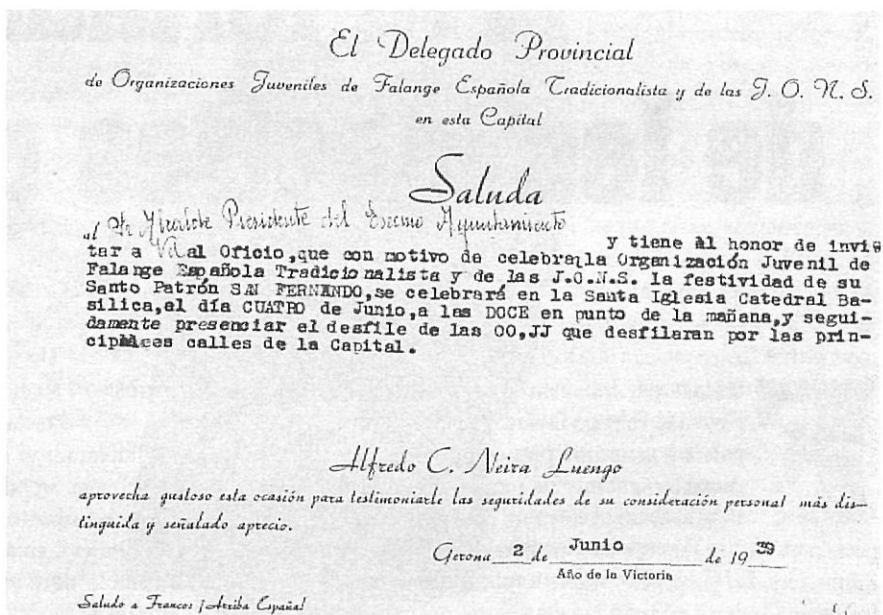 El Delegado Provincial
de Organizaciones Juveniles de Falange Española Tradicionalista y de las J. O. N. S.
en esta Capital
Saluda
al Sr Alcalde Presidente del Excmo Ayuntamiento y tiene el honor de invi
tar a Vd al Oficio,que con motivo de celebrar la Organización Juvenil de
Falange Española Tradicionalista y de las J.O.N.S. la festividad de su
Santo Patrón SAN FERNANDO,se celebrará en la Santa Iglesia Catedral Ba-
silica,el día CUATRO de Junio,a las DOCE en punto de la mañana,y segui-
damente presenciar el desfile de las OO,JJ que desfilaran por las prin-
cipales calles de la Capital.
Alfredo C. Neira Luengo
aprovecha gustoso esta ocasión para testimoniarle las seguridades de su consideración personal más dis-
tinguida y señalado aprecio.
Gerona 2 de Junio de 19 39
Año de la Victoria
Saludo a Franco: ¡Arriba España!